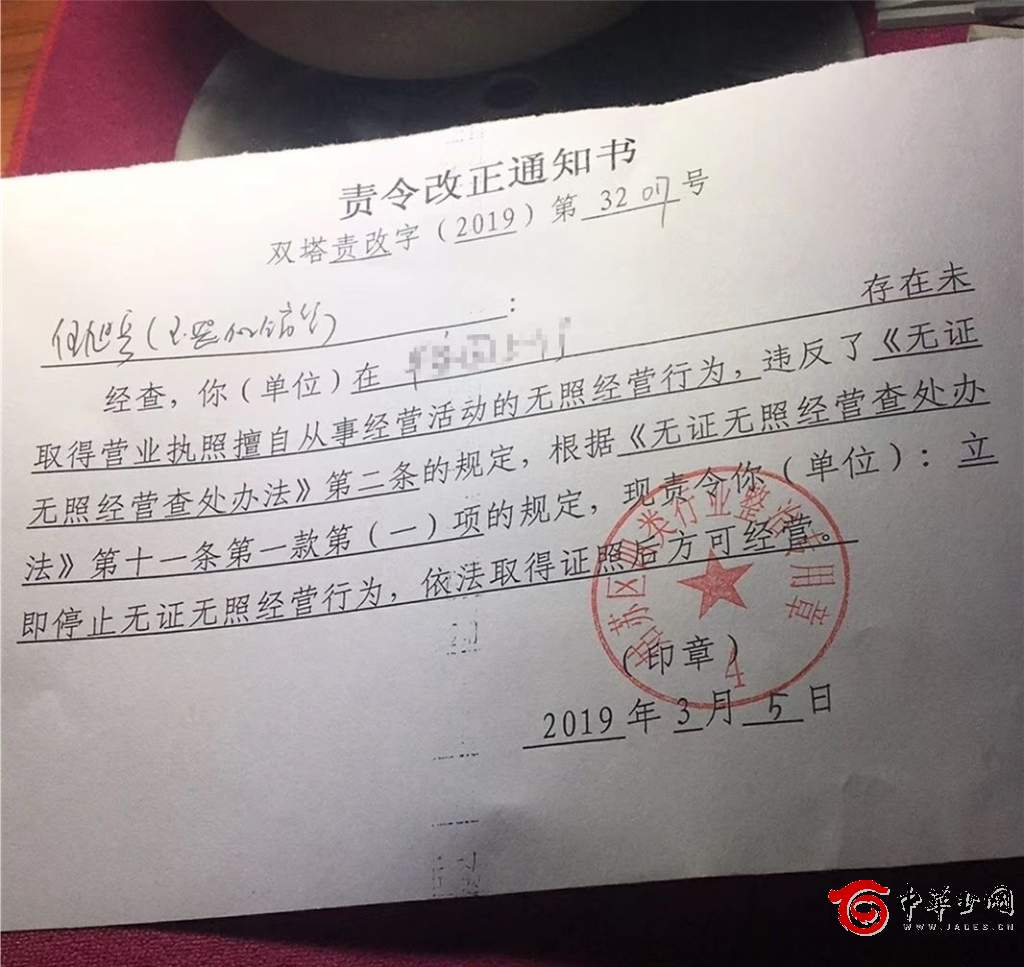 责令改正通知书
双塔责改字（2019）第 32 07 号
：
经查，你（单位）在 存在未
取得营业执照擅自从事经营活动的无照经营行为，违反了《无证
无照经营查处办法》第二条的规定，根据《无证无照经营查处办
法》第十一条第一款第（一）项的规定，现责令你（单位）：立
即停止无证无照经营行为，依法取得证照后方可经营。
类行业整治专用章
4
（印章）
2019年3月5日
中华玉网
WWW.JADES.CN